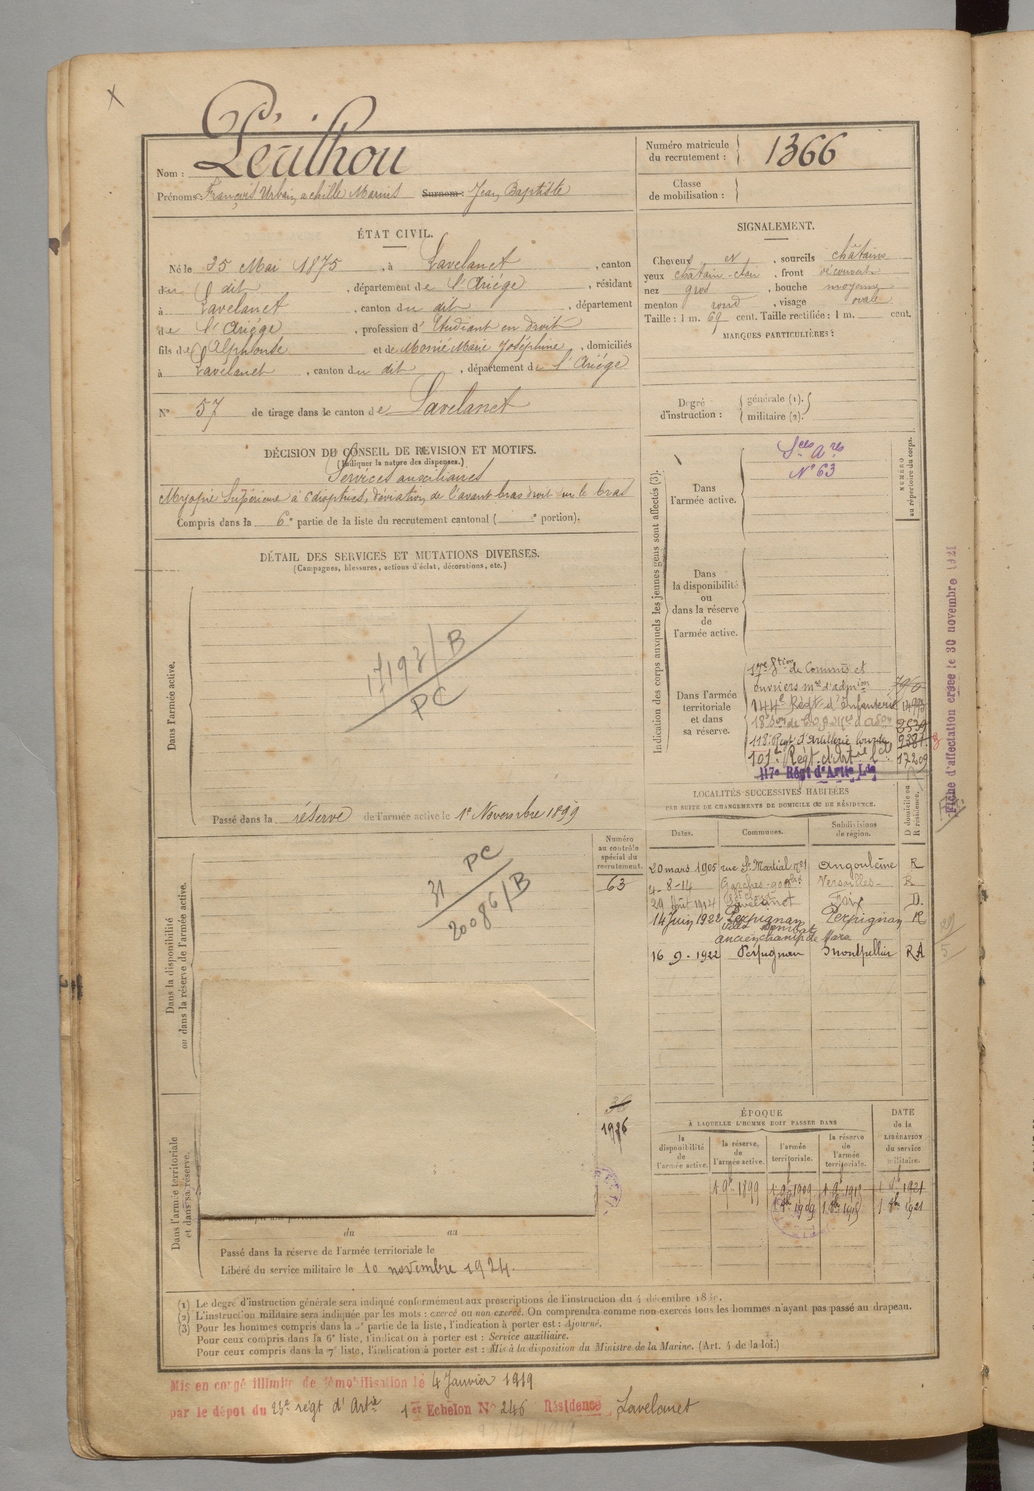 X
Nom : Périlhou
Prénoms : François Urbain, achille Marius Surnom : Jean, Baptiste
Numéro matricule du recrutement : 1366
Classe de mobilisation :
ÉTAT CIVIL.
Né le 25 Mai 1875, à Lavelanet, canton
du dit, département de l'Ariége, résidant
à Lavelanet, canton du dit, département
de l'Ariége, profession d'Etudiant en droit
fils de Alphonse et de Monié Marie Joséphine, domiciliés
à Lavelanet, canton du dit, département de l'Ariége
N° 57 de tirage dans le canton de Lavelanet
SIGNALEMENT.
Cheveux et, sourcils châtains
yeux chatain-clair, front découvert
nez gros, bouche moyenne
menton rond, visage ovale
Taille : 1 m. 69 cent. Taille rectifiée : 1 m. cent.
MARQUES PARTICULIÈRES :
Degré d'instruction : générale (1). militaire (2).
DÉCISION DU CONSEIL DE REVISION ET MOTIFS.
(Indiquer la nature des dispenses.)
Services auxiliaires
Myopie Supérieure à 6 dioptries, déviation de l'avant bras droit sur le bras
Compris dans la 6e partie de la liste du recrutement cantonal ( e portion).
DÉTAIL DES SERVICES ET MUTATIONS DIVERSES.
(Campagnes, blessures, actions d'éclat, décorations, etc.)
Dans l'armée active.
PC
Passé dans la réserve de l'armée active le 1er Novembre 1899
Indication des corps auxquels les jeunes gens sont affectés (3).
NUMÉRO au répertoire du corps.
Dans l'armée active.
N° 63
Dans la disponibilité ou dans la réserve de l'armée active.
Dans l'armée territoriale et dans sa réserve.
17me Son de Commis et
ouvriers mres d'admion
144e Régt d'Infanterie
118e Régt d'Artillerie lourde
101e Régt d'Artie
117e Régt d'Artie Lde
17209
Fiche d'affectation créée le 30 novembre 1921
LOCALITÉS SUCCESSIVES HABITÉES
PAR SUITE DE CHANGEMENTS DE DOMICILE OU DE RÉSIDENCE.
Dates. Communes. Subdivisions de région. D domicile ou R résidence.
20 mars 1905 rue St Martial n° 81 Angoulême R
4-8-14 Garches Versailles R
29 Août 1914 Lavelanet Foix D.
14 juin 1922 Perpignan Perpignan R
ancien champ de Mars
16-9-1922 Perpignan Montpellier RA
Dans la disponibilité ou dans la réserve de l'armée active.
Numéro au contrôle spécial du recrutement.
63
31 PC
20086/B
Dans l'armée territoriale et dans sa réserve.
du au
Passé dans la réserve de l'armée territoriale le
Libéré du service militaire le 10 novembre 1924.
ÉPOQUE
À LAQUELLE L'HOMME DOIT PASSER DANS
la disponibilité de l'armée active. la réserve de l'armée active. l'armée territoriale. la réserve de l'armée territoriale.
DATE de la LIBÉRATION du service militaire.
(1) Le degré d'instruction générale sera indiqué conformément aux prescriptions de l'instruction du 4 décembre
(2) L'instruction militaire sera indiquée par les mots : exercé ou non exercé. On comprendra comme non exercés tous les hommes n'ayant pas passé au drapeau.
(3) Pour les hommes compris dans la partie de la liste, l'indication à porter est : Ajourné.
Pour ceux compris dans la 6e liste, l'indication à porter est : Service auxiliaire.
Pour ceux compris dans la 7e liste, l'indication à porter est : Mis à la disposition du Ministre de la Marine. (Art. 4 de la loi.)
Mis en congé illimité de démobilisation le 4 Janvier 1919
par le dépôt du 23e régt d'Artie 1er Echelon N° 246 Résidence Lavelanet